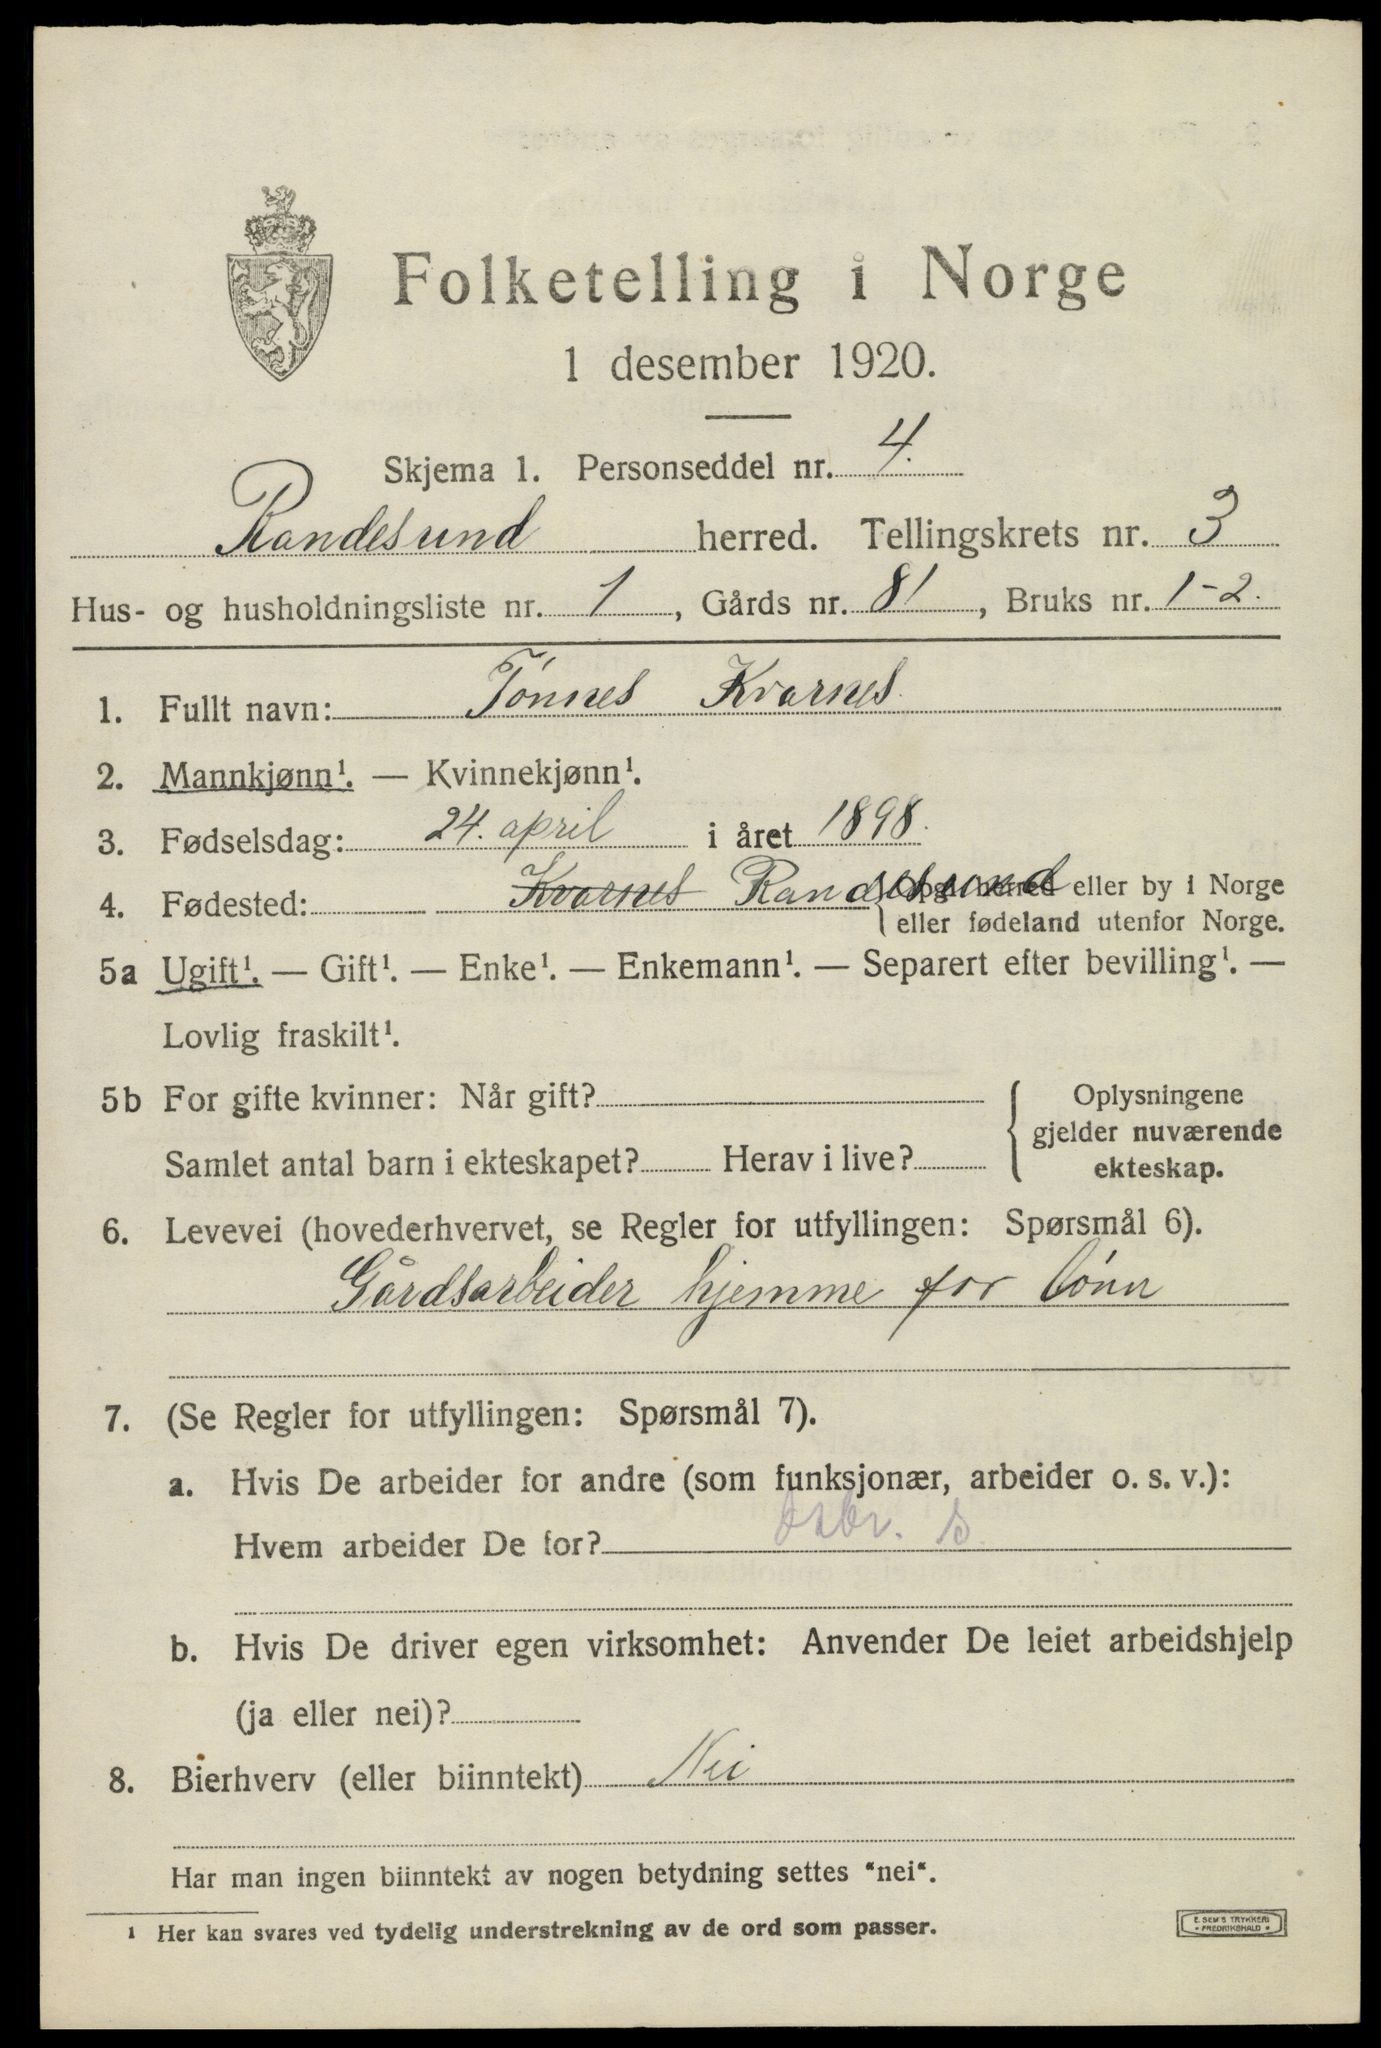 Folketelling i Norge
1 desember 1920.
Skjema 1. Personseddel nr. 4.
Randesund herred. Tellingskrets nr. 3
Hus- og husholdningsliste nr. 1, Gårds nr. 81, Bruks nr. 1-2.
1. Fullt navn: Tønnes Kvarnes.
2. Mannkjønn¹. — Kvinnekjønn¹.
3. Fødselsdag: 24. april i året 1898.
4. Fødested: Kvarnes Randesund {Opgi herred eller by i Norge
eller fødeland utenfor Norge.
5a Ugift¹. — Gift¹. — Enke¹. — Enkemann¹. — Separert efter bevilling¹. —
Lovlig fraskilt¹.
5b For gifte kvinner: Når gift? { Oplysningene
gjelder nuværende
Samlet antal barn i ekteskapet? Herav i live? ekteskap.
6. Levevei (hovederhvervet, se Regler for utfyllingen: Spørsmål 6).
Gårdsarbeider hjemme for lønn
7. (Se Regler for utfyllingen: Spørsmål 7).
a. Hvis De arbeider for andre (som funksjonær, arbeider o. s. v.):
Hvem arbeider De for?
b. Hvis De driver egen virksomhet: Anvender De leiet arbeidshjelp
(ja eller nei)?
8. Bierhverv (eller biinntekt) Nei
Har man ingen biinntekt av nogen betydning settes "nei".
1 Her kan svares ved tydelig understrekning av de ord som passer.
E. SEM'S TRYKKERI
• FREDRIKSHALD •